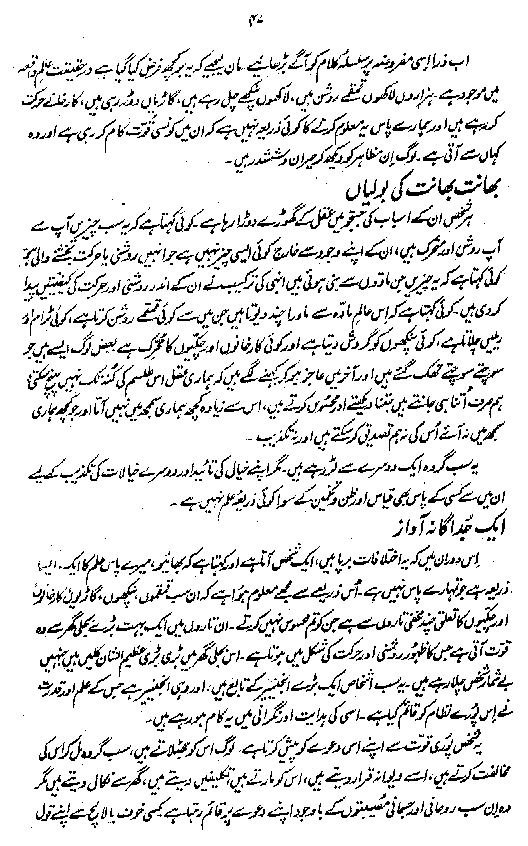 ۴۷
اب ذرا اسی مفروضہ پر سلسلۂ کلام کو آگے بڑھائیے۔ مان لیجیے کہ یہ جو کچھ فرض کیا گیا ہے درحقیقت عالمِ واقعہ
میں موجود ہے۔ ہزاروں لاکھوں قمقمے روشن ہیں، لاکھوں پنکھے چل رہے ہیں، گاڑیاں دوڑ رہی ہیں، کارخانے حرکت
کر رہے ہیں اور ہمارے پاس یہ معلوم کرنے کا کوئی ذریعہ نہیں ہے کہ ان میں کونسی قوت کام کر رہی ہے اور وہ
کہاں سے آتی ہے۔ لوگ ان مظاہر کو دیکھ کر حیران و ششدر ہیں۔
بھانت بھانت کی بولیاں
ہر شخص ان کے اسباب کی جستجو میں عقل کے گھوڑے دوڑا رہا ہے۔ کوئی کہتا ہے کہ یہ سب چیزیں آپ سے
آپ روشن اور متحرک ہیں، ان کے اپنے وجود سے خارج کوئی ایسی چیز نہیں ہے جو انہیں روشنی یا حرکت بخشنے والی ہو۔
کوئی کہتا ہے کہ یہ چیزیں جن مادوں سے بنی ہوئی ہیں انہی کی ترکیب نے ان کے اندر روشنی اور حرکت کی کیفیتیں پیدا
کر دی ہیں۔ کوئی کہتا ہے کہ اس عالمِ مادہ سے ماورا چند دیوتا ہیں جن میں سے کوئی قمقمے روشن کرتا ہے، کوئی ٹرام اور
ریلیں چلاتا ہے، کوئی پنکھوں کو گردش دیتا ہے اور کوئی کارخانوں اور چکیوں کا محرک ہے۔ بعض لوگ ایسے ہیں جو
سوچتے سوچتے تھک گئے ہیں اور آخر میں عاجز ہو کر کہنے لگے ہیں کہ ہماری عقل اس طلسم کی کنہ تک نہیں پہنچ سکتی،
ہم صرف اتنا ہی جانتے ہیں جتنا دیکھتے اور محسوس کرتے ہیں، اس سے زیادہ کچھ ہماری سمجھ میں نہیں آتا اور جو کچھ ہماری
سمجھ میں نہ آئے اُس کی نہ ہم تصدیق کر سکتے ہیں اور نہ تکذیب۔
یہ سب گروہ ایک دوسرے سے لڑ رہے ہیں۔ مگر اپنے خیال کی تائید اور دوسرے خیالات کی تکذیب کے لیے
ان میں سے کسی کے پاس بھی قیاس اور ظن و تخمین کے سوا کوئی ذریعۂ علم نہیں ہے۔
ایک جُداگانہ آواز
اس دوران میں کہ یہ اختلافات برپا ہیں، ایک شخص آتا ہے اور کہتا ہے کہ بھائیو، میرے پاس علم کا ایک ایسا
ذریعہ ہے جو تمہارے پاس نہیں ہے۔ اُس ذریعے سے مجھے معلوم ہوا ہے کہ ان سب قمقموں، پنکھوں، گاڑیوں، کارخانوں
اور چکیوں کا تعلق چند مخفی تاروں سے ہے جن کو تم محسوس نہیں کرتے۔ ان تاروں میں ایک بہت بڑے بجلی گھر سے وہ
قوت آتی ہے جس کا ظہور روشنی اور حرکت کی شکل میں ہوتا ہے۔ اس بجلی گھر میں بڑی بڑی عظیم الشان کلیں ہیں جنہیں
بے شمار اشخاص چلا رہے ہیں۔ یہ سب اشخاص ایک بڑے انجینیر کے تابع ہیں، اور وہی انجینیر ہے جس کے علم اور قدرت
نے اس پُورے نظام کو قائم کیا ہے۔ اسی کی ہدایت اور نگرانی میں یہ کام ہو رہے ہیں۔
یہ شخص پوری قوت سے اپنے اس دعوے کو پیش کرتا ہے۔ لوگ اس کو جھٹلاتے ہیں، سب گروہ مل کر اس کی
مخالفت کرتے ہیں، اسے دیوانہ قرار دیتے ہیں، اس کو مارتے ہیں، تکلیفیں دیتے ہیں، گھر سے نکال دیتے ہیں مگر
وہ ان سب روحانی اور جسمانی مصیبتوں کے باوجود اپنے دعوے پر قائم رہتا ہے، کسی خوف یا لالچ سے اپنے قول